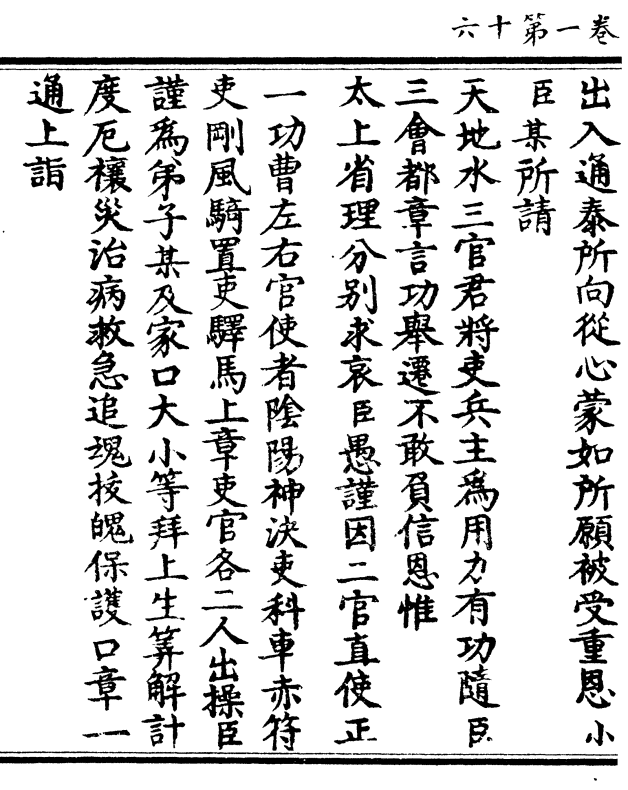 卷一第十六
出入通泰所向從心蒙如所願被受重恩小
臣某所請
天地水三官君將吏兵主爲用力有功隨臣
三會都章言功舉遷不敢負信恩惟
太上省理分別求哀臣愚謹因二官直使正
一功曹左右官使者陰陽神決吏科車赤符
吏剛風騎置吏驛馬上章吏官各二人出操臣
謹爲弟子某及家口大小等拜上生筭解計
度厄禳災治病救急追魂捡魄保護口章一
通上詣